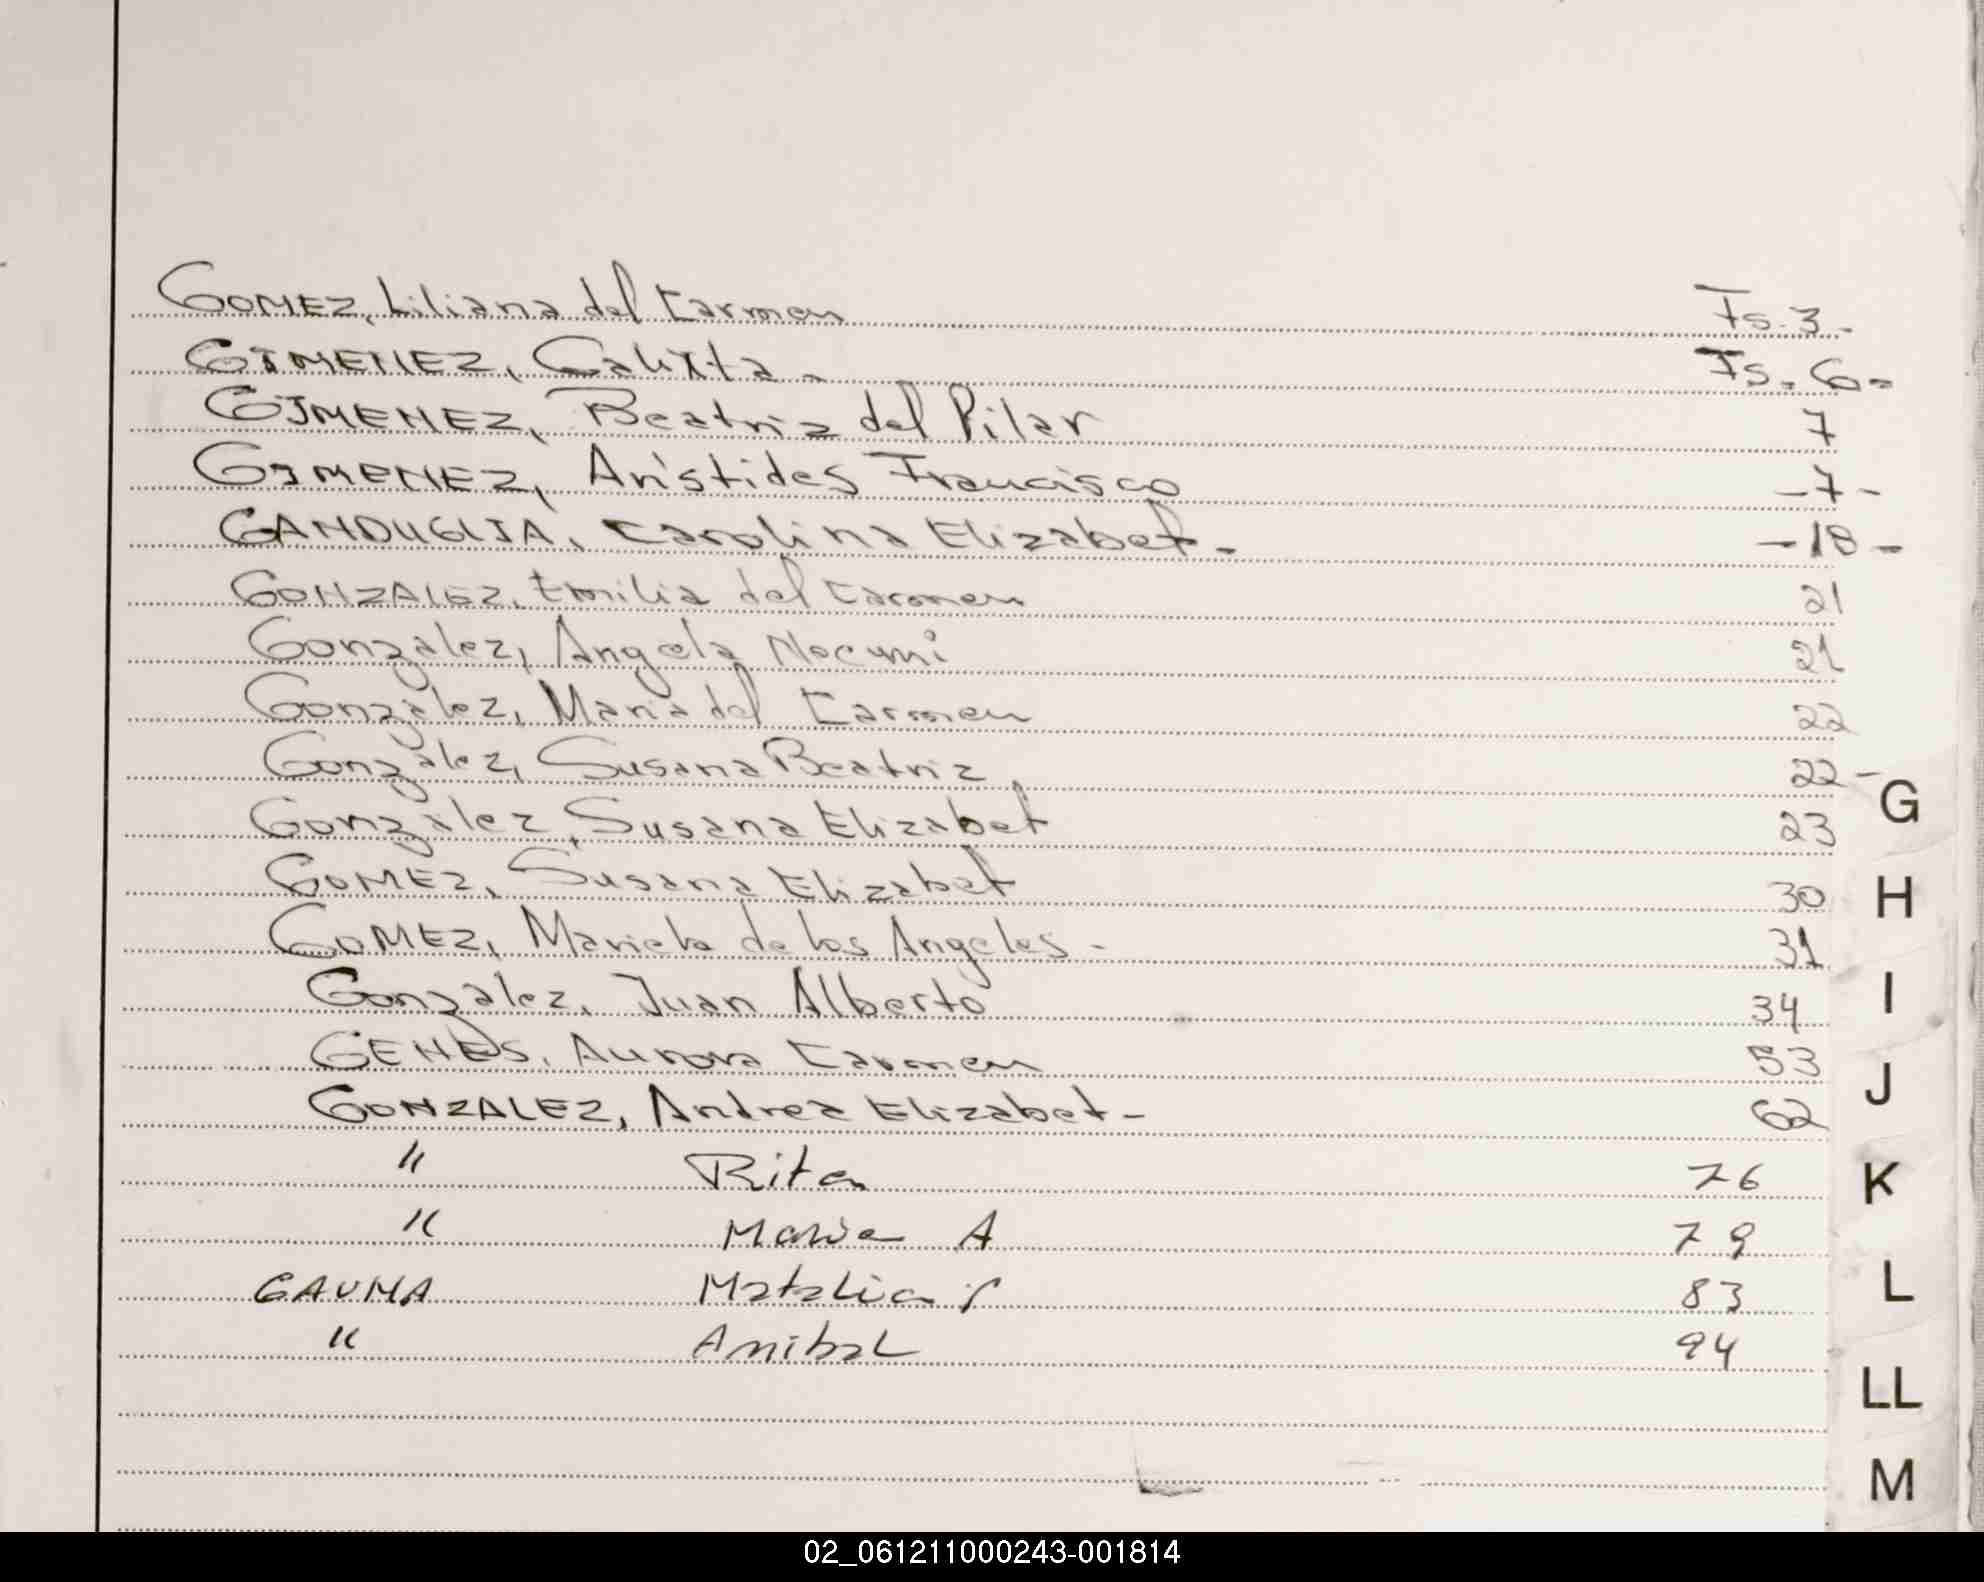 GOMEZ, Liliana del Carmen Fs. 3-
GIMENEZ, Calixta - Fs. 6-
GIMENEZ, Beatriz del Pilar 7
GIMENEZ, Arístides Francisco -7-
GANDUGLIA, Carolina Elizabet- -18-
GONZALEZ, Emilia del Carmen 21
Gonzalez, Angela Noemi 21
González, Maria del Carmen 22
González, Susana Beatriz 22-
González, Susana Elizabet 23
GOMEZ, Susana Elizabet 30
GOMEZ, Mariela de los Angeles - 31
González, Juan Alberto 34
GENES, Aurora Carmen 53
GONZALEZ, Andrea Elizabet- 62
" Rita 76
" Maria A 79
GAUNA Natalia 83
" Anibal 94
G
H
I
J
K
L
LL
M
02_061211000243-001814